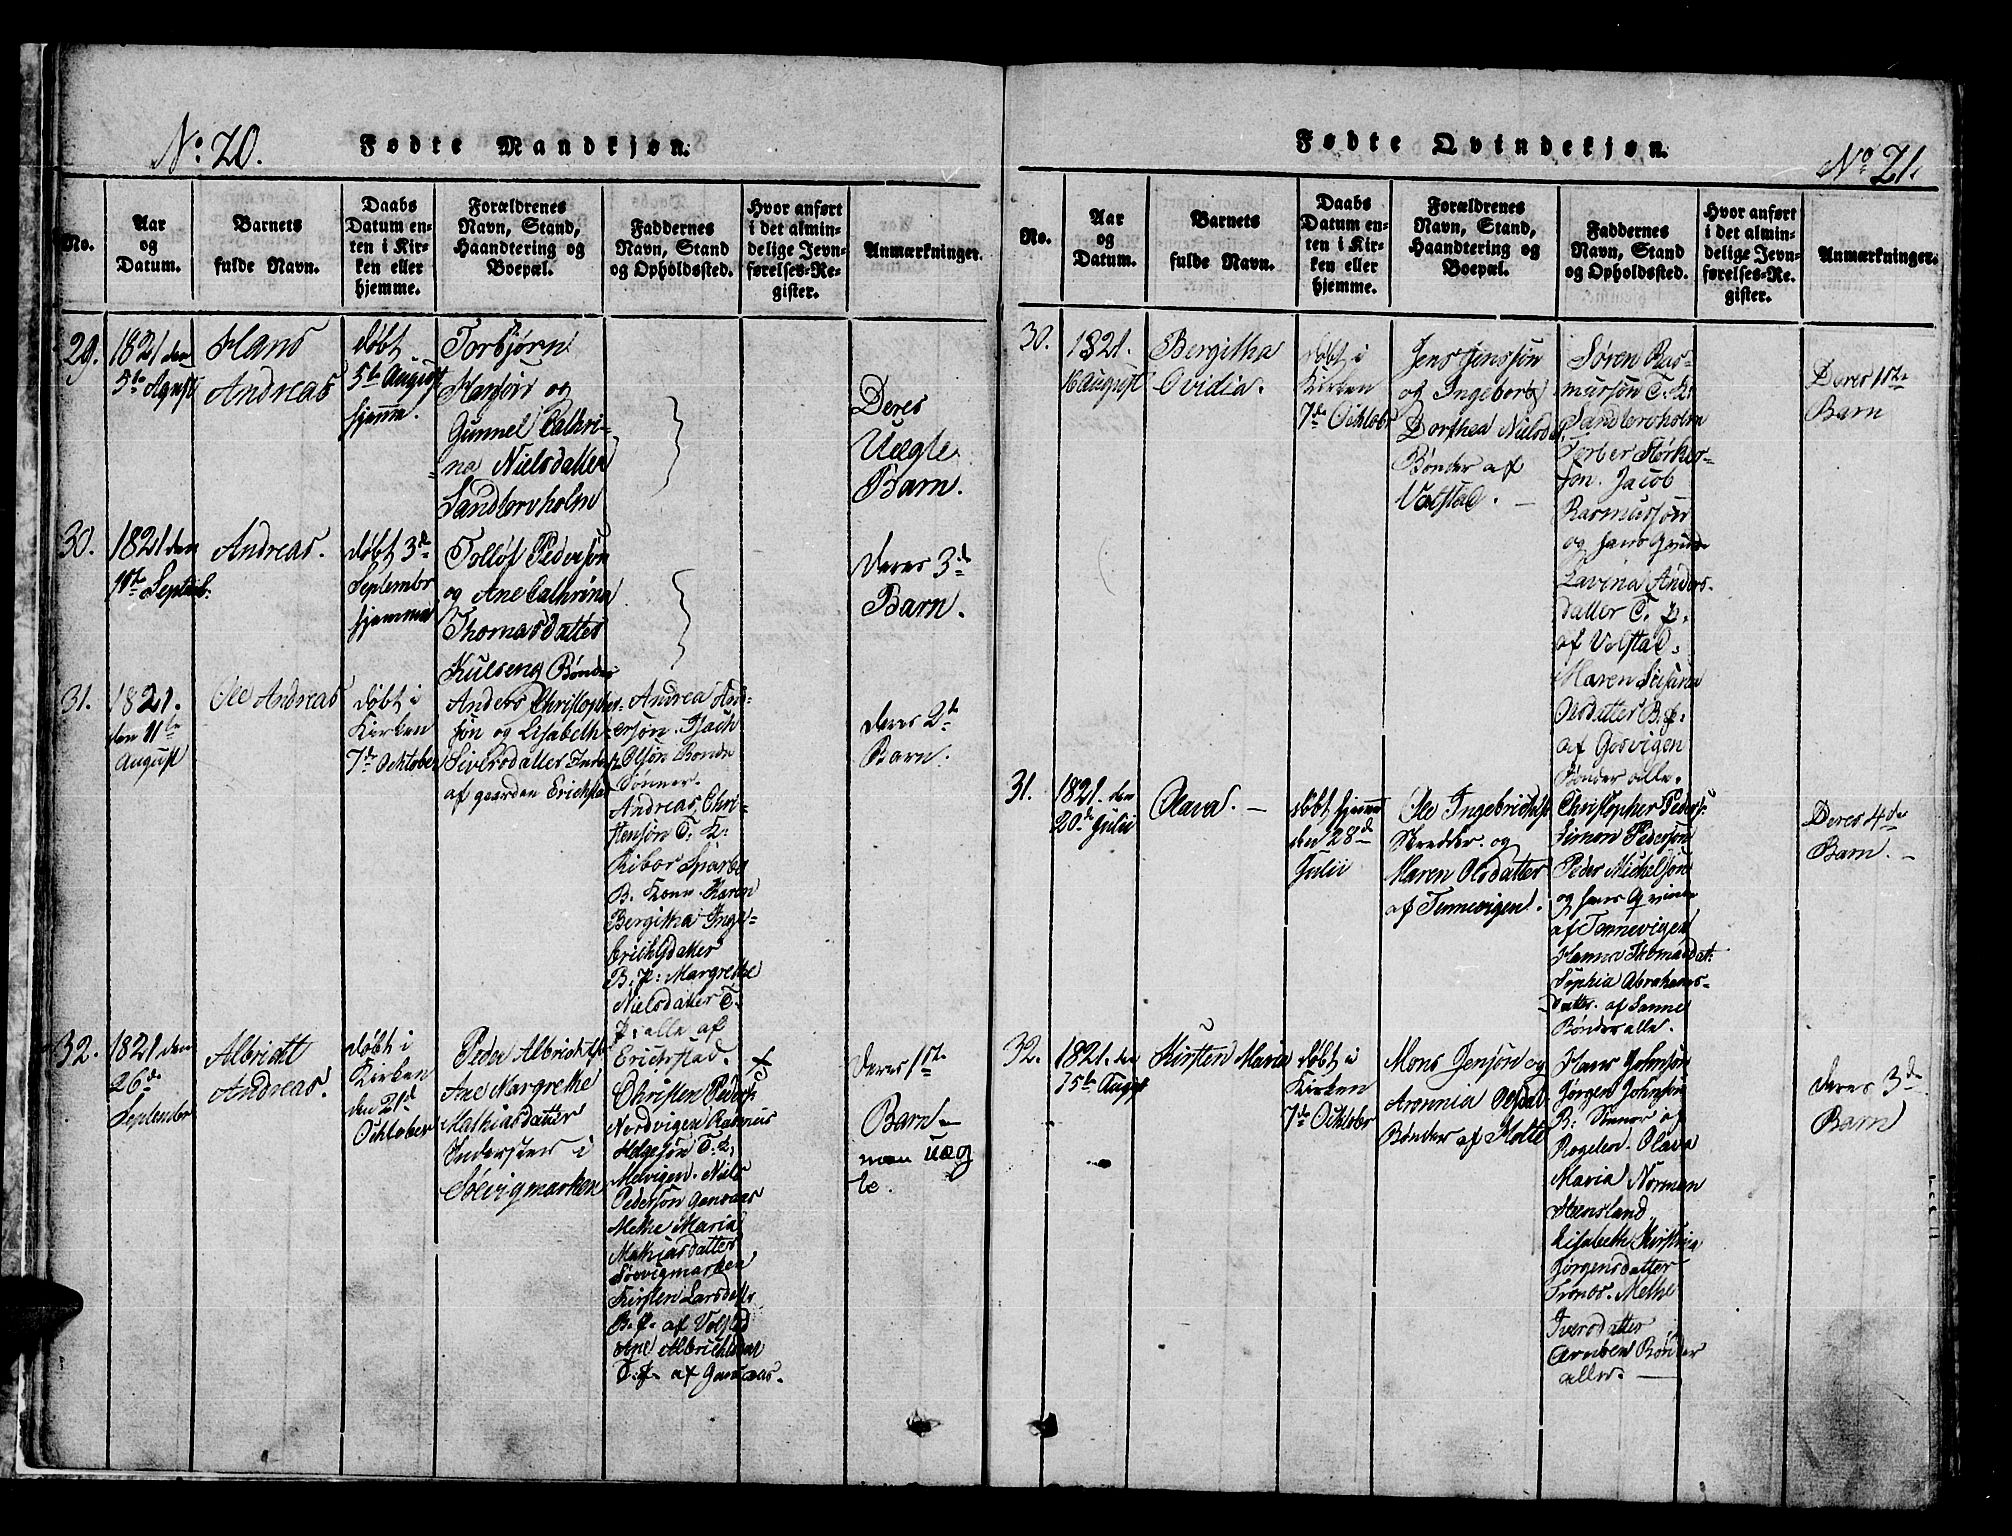 No. 20.
Fødte Mandkjøn.
No.
Aar
og
Datum.
Barnets
fulde Navn.
Daabs
Datum en-
ten i Kir-
ken eller
hjemme.
Forældrenes
Navn, Stand,
Haandtering og
Boepæl.
Faddernes
Navn, Stand
og Opholdssted.
Hvor anført
i det almin-
delige Jevn-
førelses-Re-
gister.
Anmærkninger.
29.
1821 den
5te Agust
Hans
Andreas
døbt
5te August
hjemme.
Torbjørn
og
Gunnel Cathri-
na Nielsdatter
Sandtervholm
Deres
Uægte
Barn.
30.
1821 den
1ste Septemb.
Andreas.
døbt 3de
Septembr
hjemme
Tolløf Pedersøn
og Ane Cathrina
Thomasdatter
Kulseng Bønder
deres 3de
Barn.
31.
1821.
den 11te
August
Ole Andreas
døbt i
Kirken
7de Ochtober
Anders Christopher-
søn og Lisabeth
Siversdatter
af gaarden Erichstad
Andrea And-
ersøn. Isach
Olsøn Bonde
Sønner.
Andreas Chri-
stensøn T. K:
Kibor Sparbo
B. Kone. Karen
Bergitha Inge-
brichtsdatter
B. P: Margrethe
Nielsdatter T.
P: alle af
Erichstad.
deres 2de
Barn.
32.
1821 den
26de
September
Albricht
Andreas.
døbt i
Kirken
den 21de
Ochtober
Peder Albrichts
Ane Margrethe
Mathiasdatter
Indersten i
Sølvigmarken
Christen Peders:
Nordvigen Rasmus
Helgesøn T. K:
Melvigen. Niels
Pedersøn Gamaas
Methe Maria
Mathiasdatter
Søevigmarken
Kirsten Larsdatr
B. P. af Volstad
Ane Albrichtsdat
T. P. af Gamaas.
deres 1ste
Barn
men uæg
te.
Fødte Qvindekjøn.
No. 21.
No.
Aar
og
Datum.
Barnets
fulde Navn.
Daabs
Datum en-
ten i Kir-
ken eller
hjemme.
Forældrenes
Navn, Stand,
Haandtering og
Boepæl.
Faddernes
Navn, Stand
og Opholdssted.
Hvor anført
i det almin-
delige Jevn-
førelses-Re-
gister.
Anmærkninger.
30.
1821.
16 August
Bergitha
Ovidia.
døbt i
Kirken
7de Ochtobr
Jens Jenssøn
og Ingeborg
Dorthea Nielsd:
Bønder af
Volstad. —
Søren Ras-
mussøn T. K.
Sandtervholm
Torber Størker-
søn. Jacob
Rasmussøn
og hans Qvinde
Lavina Anders-
datter T. P.
af Volstad.
Maren Susana
Olsdatter B. P.
af Gosvigen
Bønder alle.
Deres 1ste
Barn
31.
1821. den
20de Julii
Olava. —
døbt hjemme
den 28de
Julii
Ole Ingebrichts
Skredder. og
Maren Olsdatter
af Tennevigen.
Christopher Peders:
Simon Pedersøn
Peder Michelsøn
og hans Qvinde
af Tennevigen
Hanna Thomasdat:
Sophia Abrahams-
datter. af Sanne
Bønder alle.
Deres 4de
Barn. —
32.
1821. den
15te Augst
Kirsten Maria
døbt i
Kirken
7de Ochtobr
Mons Jensøn og
Aronnia Olsdat
Bønder af Holte
Hans Johnsøn
Jørgen Johnsøn
B: Sønner og
Olava
Maria Norman
Stensland
Lisabeth Kirstina
Jørgensdatter
Trones. Methe
Iversdatter
Bønder
alle. —
deres 3de
Barn